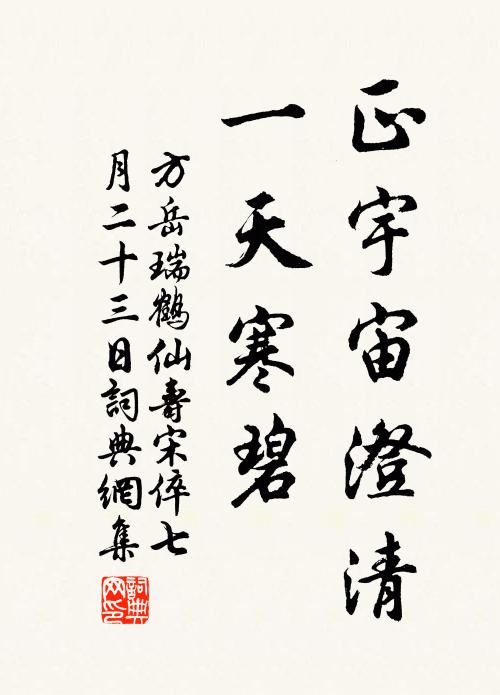 正宇宙澄清
一天寒碧
方岳瑞鶴仙壽宋倅七
月二十三日詞典網集
詞典
网印